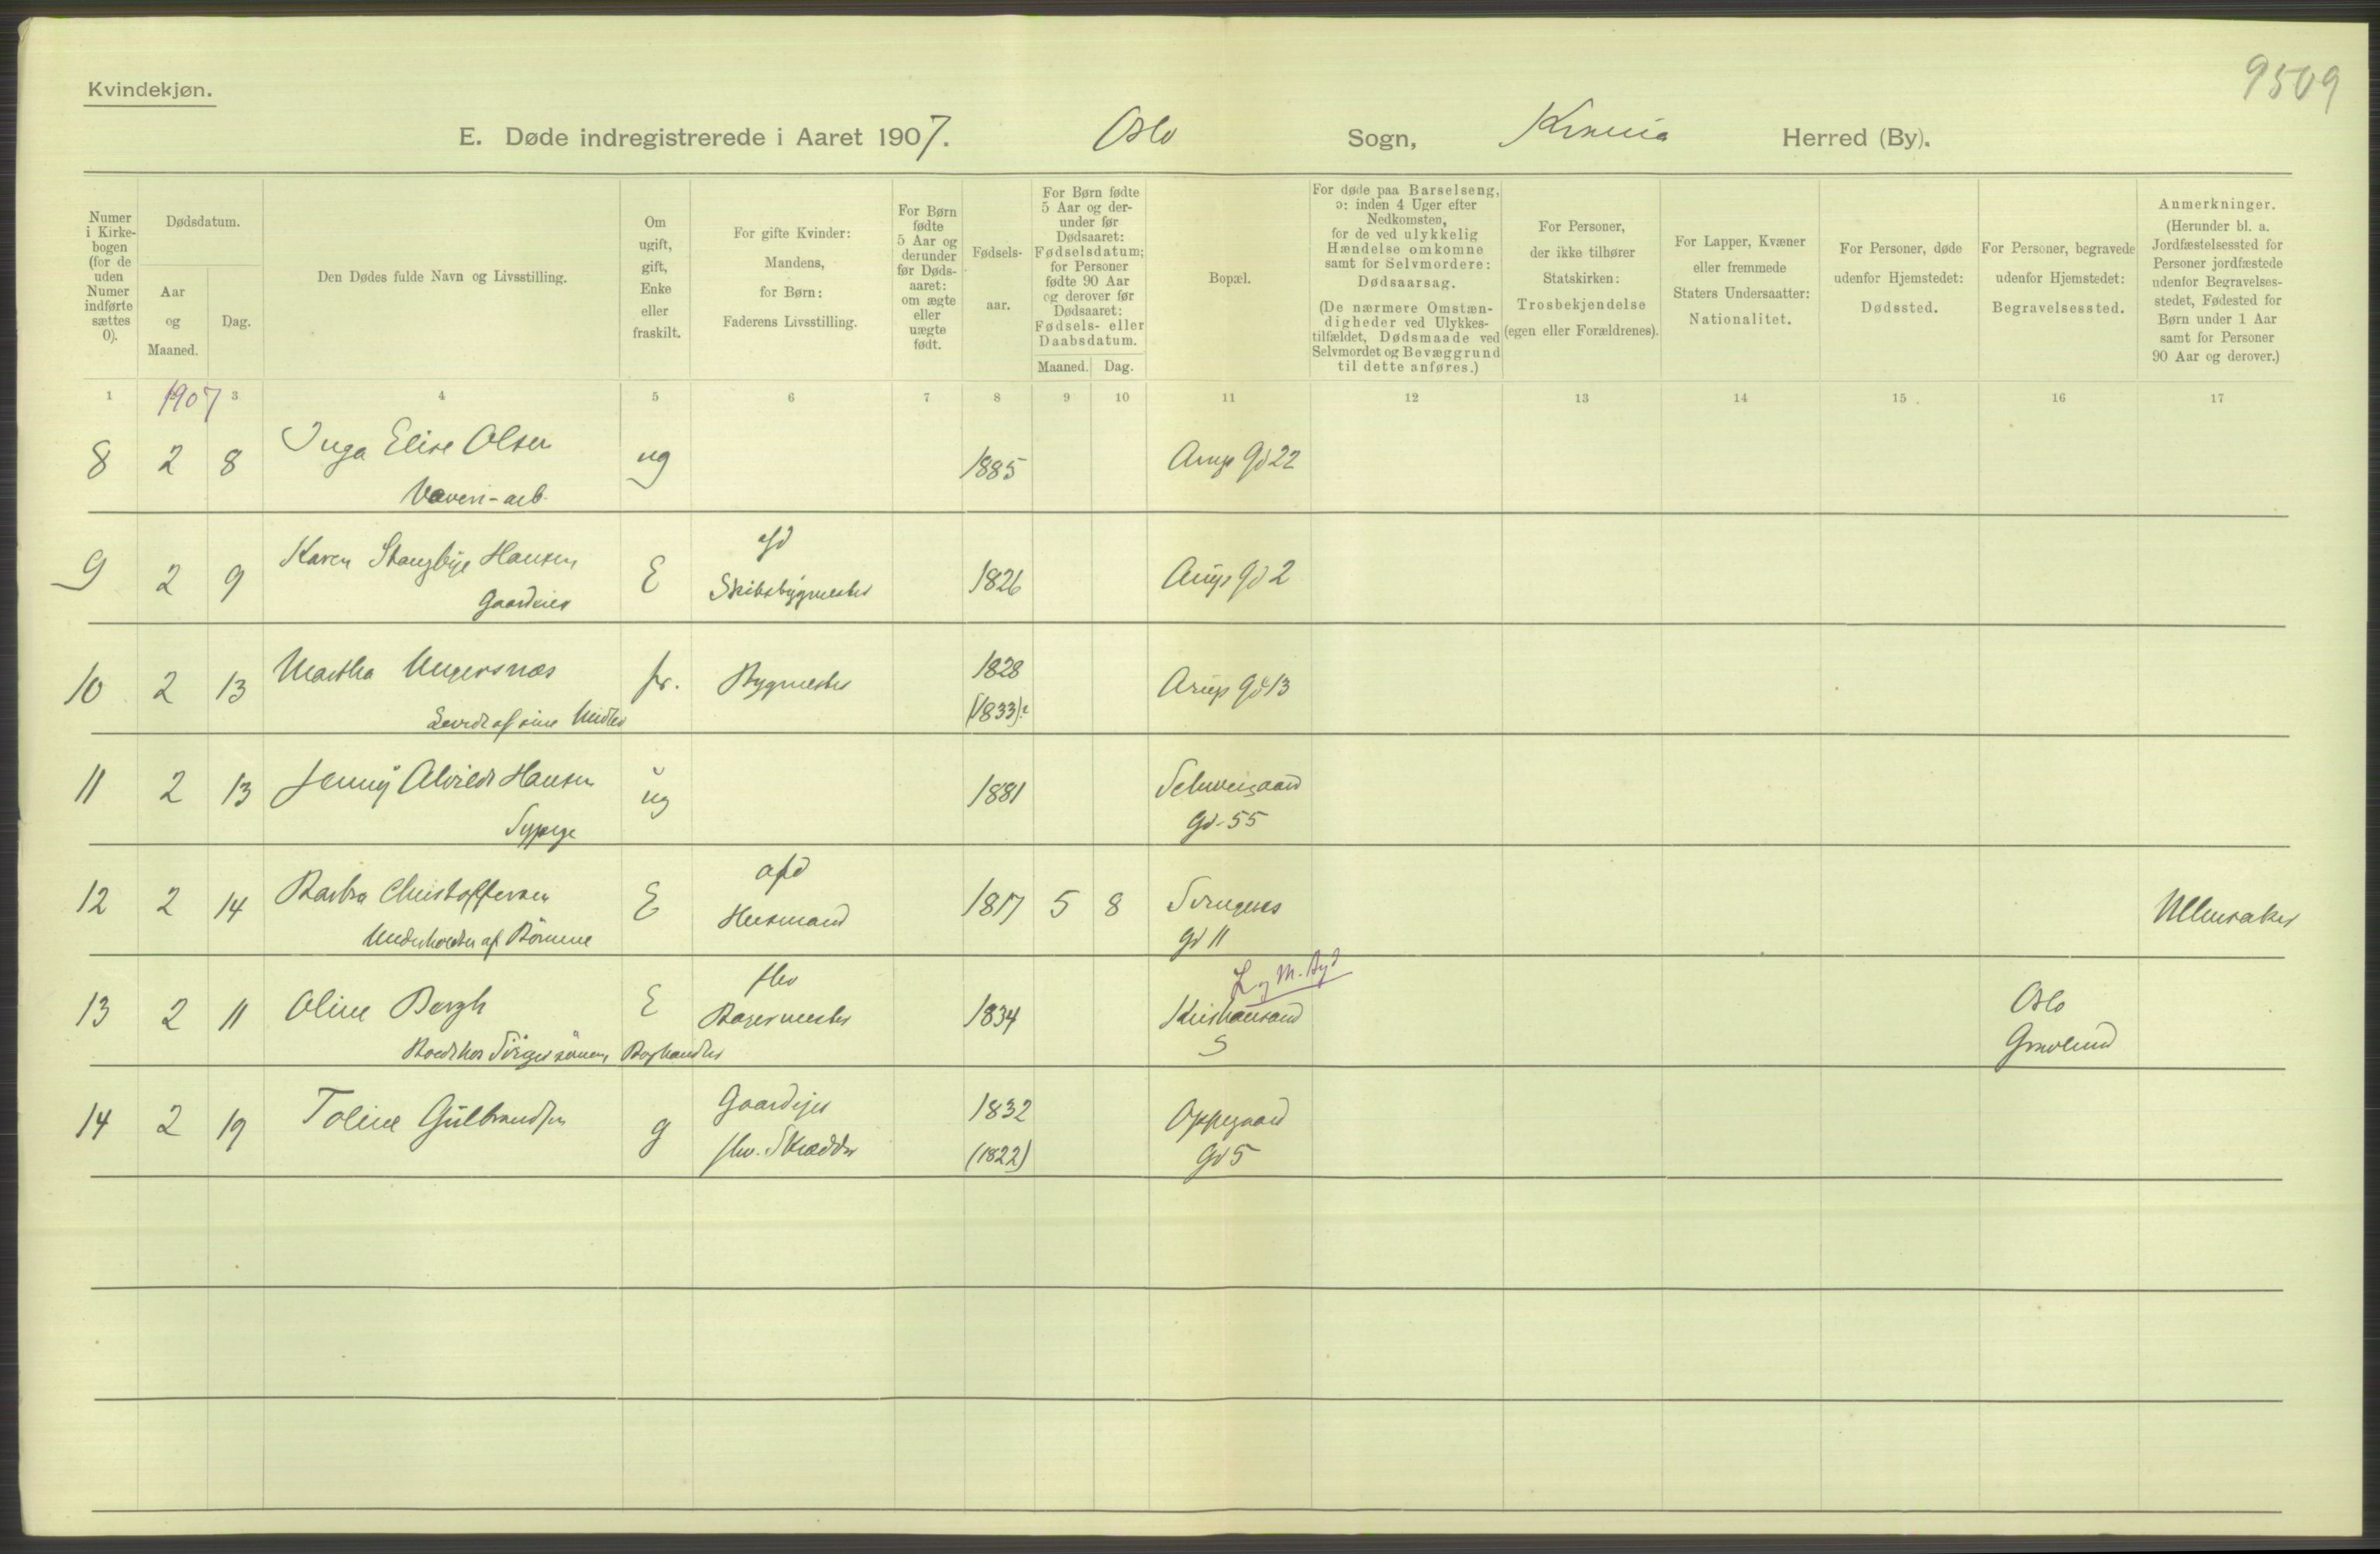 9509
Kvindekjøn.
E. Døde indregistrerede i Aaret 1907. Oslo Sogn, Krania Herred (By).
Numer i Kirkebogen (for de uden Numer indførte sættes 0).
Dødsdatum.
Aar og Maaned.
Dag.
Den Dødes fulde Navn og Livsstilling.
Om ugift, gift, Enke eller fraskilt.
For gifte Kvinder: Mandens, for Børn: Faderens Livsstilling.
For Børn fødte 5 Aar og derunder før Dødsaaret: om ægte eller uægte født.
Fødsels-aar.
For Børn fødte 5 Aar og derunder før Dødsaaret: Fødselsdatum; for Personer fødte 90 Aar og derover før Dødsaaret: Fødsels- eller Daabsdatum.
Maaned. Dag.
Bopæl.
For døde paa Barselseng, ɔ: inden 4 Uger efter Nedkomsten, for de ved ulykkelig Hændelse omkomne samt for Selvmordere: Dødsaarsag.
(De nærmere Omstændigheder ved Ulykkestilfældet, Dødsmaade ved Selvmordet og Bevæggrund til dette anføres.)
For Personer, der ikke tilhører Statskirken: Trosbekjendelse (egen eller Forældrenes).
For Lapper, Kvæner eller fremmede Staters Undersaatter: Nationalitet.
For Personer, døde udenfor Hjemstedet: Dødssted.
For Personer, begravede udenfor Hjemstedet: Begravelsessted.
Anmerkninger.
(Herunder bl. a. Jordfæstelsessted for Personer jordfæstede udenfor Begravelsesstedet, Fødested for Børn under 1 Aar samt for Personer 90 Aar og derover.)
1 1907 3 4 5 6 7 8 9 10 11 12 13 14 15 16 17
8 2 8 Inga Elise Olsen ug 1885 Arups Gd 22
Væveri-arb.
9 2 9 Karen Stangbye Hansen E afd 1826 Arups Gd 2
Gaardeier Skibsbygmester
10 2 13 Martha Ungersnæs fr. Bygmester 1828 Arups Gd 13
Levede af sine Midler (1833)?
11 2 13 Jenny Alvilde Hansen ug 1881 Schweigaard
Sypige Gd. 55
12 2 14 Barbra Christoffersen E afd Husmand 1817 5 8 Gd 11 Ullensaker
Underholdtes af Børnene
13 2 11 Oline Bergh E flv Bagermester 1834 Kristiansand S Oslo
Boghandler Grønland
14 2 19 Toline Gulbrandsen g Gaardejer 1832 Oppegaard
flv. Skrædder (1822) Gd 5